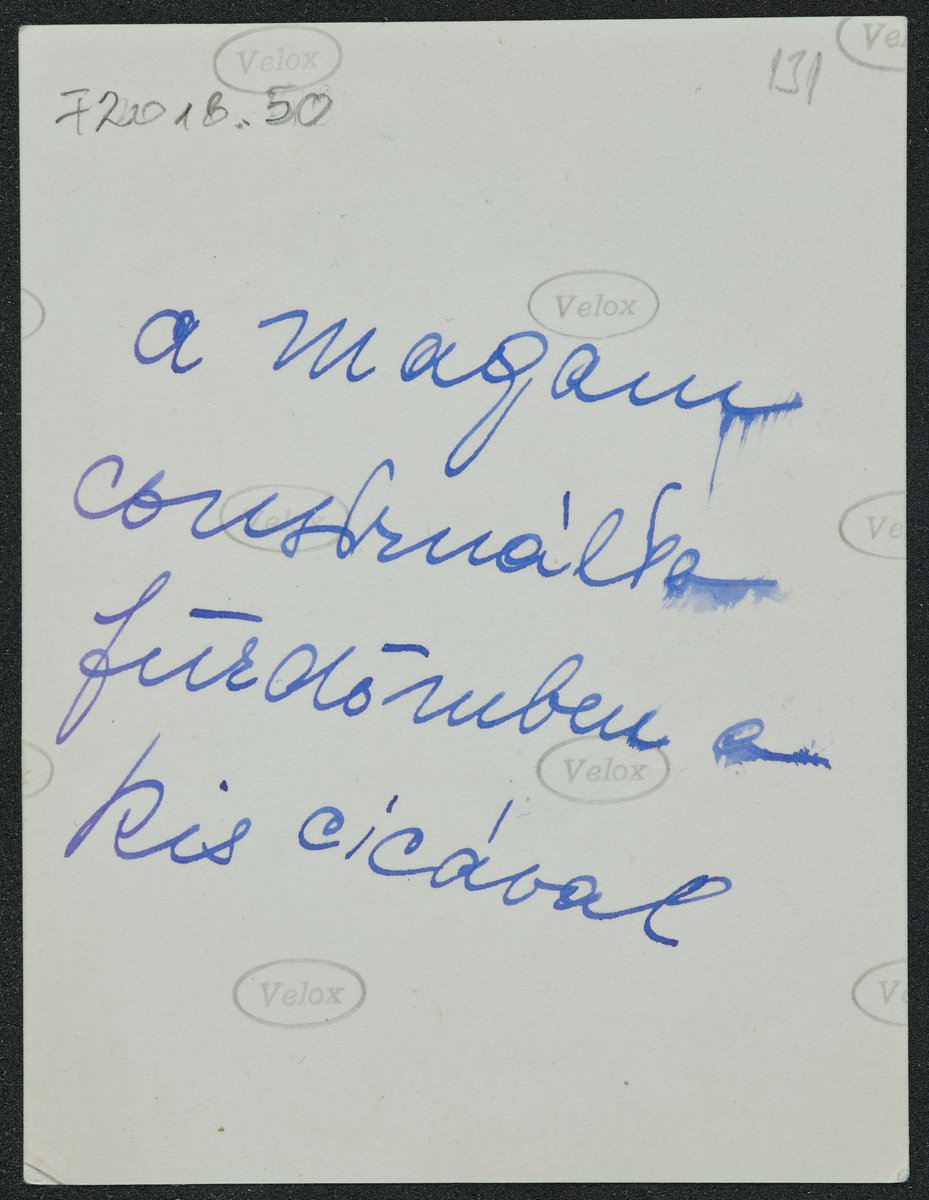 Velox
Ve
131
F2018.50
Velox
a magam
Velox
construálta
Ve
fürdőmben a
Velox
kis cicával
Velox
V